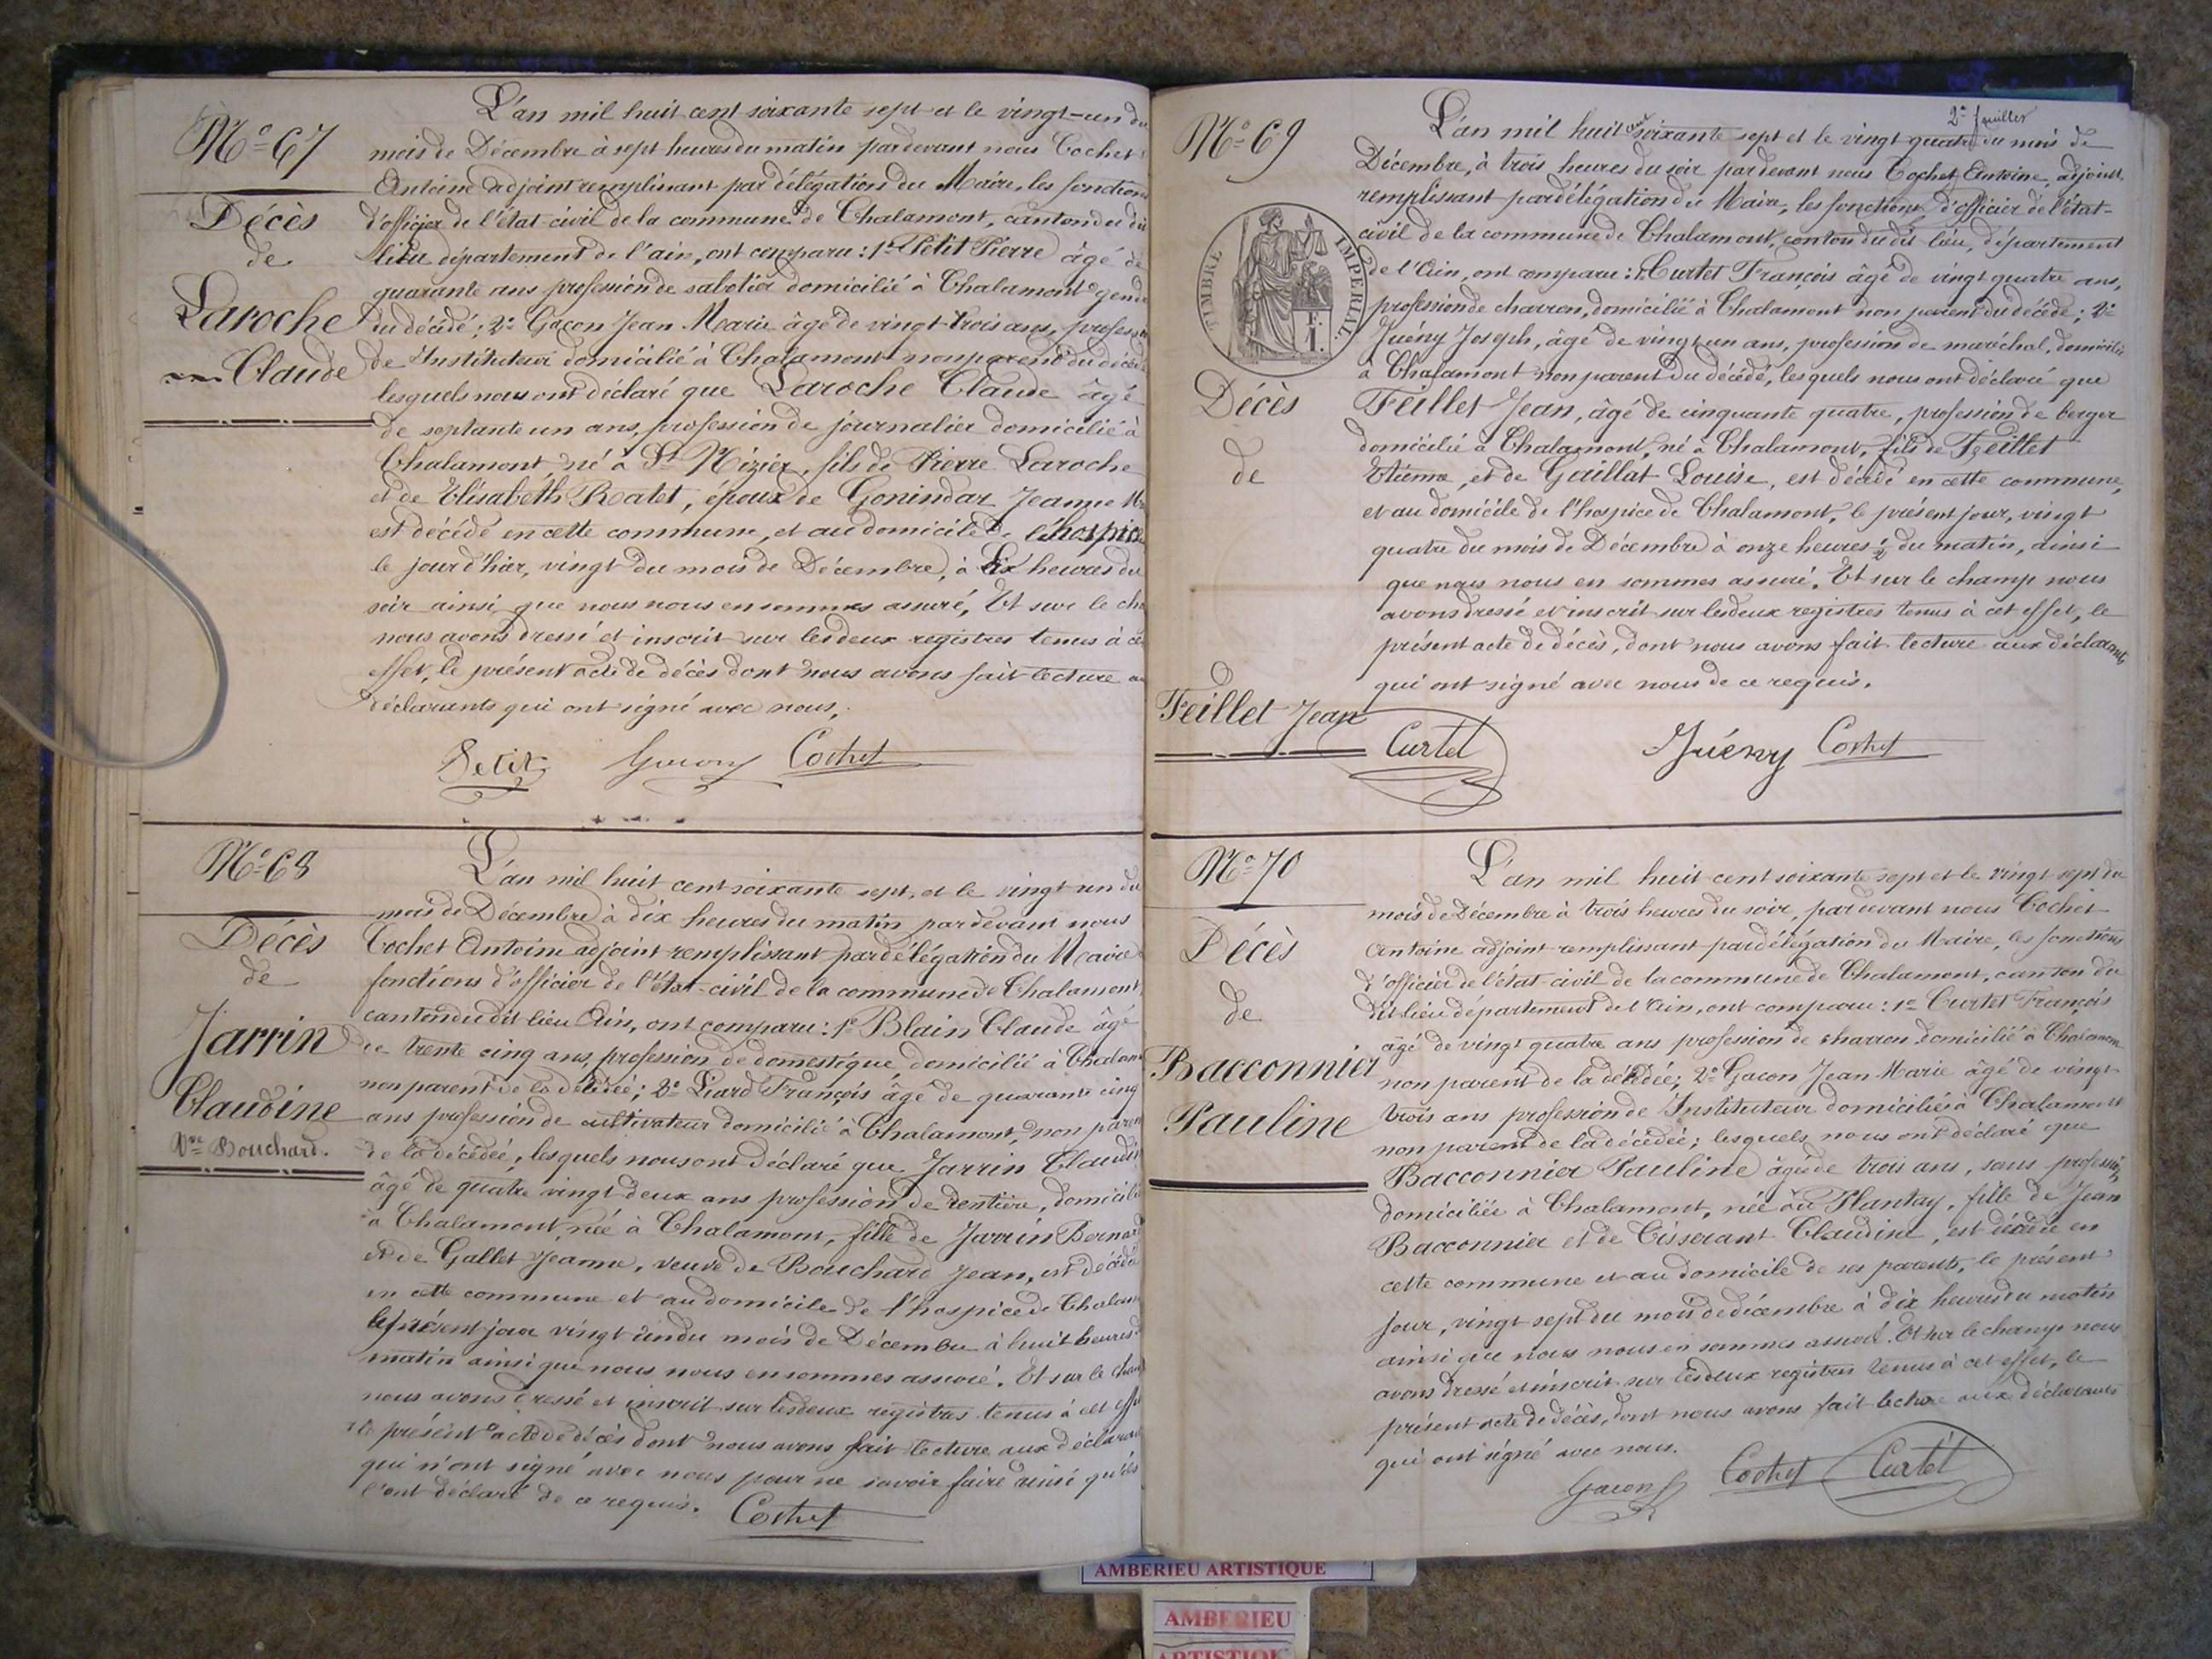 No 67
Décès
de
Laroche
Claude
L'an mil huit cent soixante sept et le vingt-un du
mois de Décembre à sept heures du matin pardevant nous Cochet
Antoine adjoint remplissant par délégation du Maire, les fonctions
d'officier de l'état civil de la commune de Chalamont, canton du dit
lieu département de l'ain, ont comparu : 1o Petit Pierre âgé de
quarante ans profession de sabotier domicilié à Chalamont gendre
du décédé ; 2o Gacon Jean Marie âgé de vingt trois ans, profession
de Instituteur domicilié à Chalamont non parent du décédé
lesquels nous ont déclaré que Laroche Claude âgé
de septante un ans, profession de journalier domicilié à
Chalamont né à St Nizier, fils de Pierre Laroche
et de Elisabeth Ratet, époux de Gonindar Jeanne
est décédé en cette commune, et au domicile de l'hospice
le jour d'hier, vingt du mois de Décembre, à dix heures du
soir ainsi que nous nous en sommes assuré, Et sur le
nous avons dressé et inscrit sur les deux registres tenus à cet
effet, le présent acte de décès dont nous avons fait lecture
déclarants qui ont signé avec nous,
Petit Gacon Cochet
No 68
Décès
de
Jarrin
Claudine
Vve Bouchard.
L'an mil huit cent soixante sept, et le vingt un du
mois de Décembre à dix heures du matin pardevant nous
Cochet Antoine adjoint remplissant par délégation du Maire
fonctions d'officier de l'état-civil de la commune de Chalamont,
canton du dit lieu Ain, ont comparu : 1o Blain Claude âgé
de trente cinq ans, profession de domestique domicilié à Chalamont
non parent de la décédée ; 2o Liard François âgé de quarante cinq
ans profession de cultivateur domicilié à Chalamont, non parent
de la décédée, lesquels nous ont déclaré que Jarrin Claudine
âgé de quatre vingt deux ans profession de rentière, domicilié
à Chalamont, née à Chalamont, fille de Jarrin Bernard
et de Gallet Jeanne, veuve de Bouchard Jean, est décédé
en cette commune et au domicile de l'hospice de Chalamont
le présent jour vingt un du mois de Décembre à huit heures du
matin ainsi que nous nous en sommes assuré. Et sur le champ
nous avons dressé et inscrit sur les deux registres tenus à cet effet
le présent acte de décès dont nous avons fait lecture aux déclarants
qui n'ont signé avec nous pour ne savoir faire ainsi qu'ils
l'ont déclaré de ce requis. Cochet
2e feuillet
No 69
TIMBRE IMPERIAL
1 F.
Décès
de
Feillet Jean
L'an mil huit cent soixante sept et le vingt quatre du mois de
Décembre, à trois heures du soir pardevant nous Cochet Antoine, adjoint
remplissant par délégation du Maire, les fonctions d'officier de l'état-
civil de la commune de Chalamont, canton du dit lieu, département
de l'Ain, ont comparu : 1o Curtet François âgé de vingt quatre ans,
profession de charron, domicilié à Chalamont non parent du décédé ; 2o
Juény Joseph, âgé de vingt un ans, profession de maréchal, domicilié
à Chalamont non parent du décédé, lesquels nous ont déclaré que
Feillet Jean, âgé de cinquante quatre, profession de berger
domicilié à Chalamont, né à Chalamont, fils de Feillet
Etienne, et de Gaillat Louise, est décédé en cette commune,
et au domicile de l'hospice de Chalamont, le présent jour, vingt
quatre du mois de Décembre à onze heures 1/2 du matin, ainsi
que nous nous en sommes assuré, Et sur le champ nous
avons dressé et inscrit sur les deux registres tenus à cet effet, le
présent acte de décès, dont nous avons fait lecture aux déclarants
qui ont signé avec nous de ce requis.
Curtet Juény Cochet
No 70
Décès
de
Bacconnier
Pauline
L'an mil huit cent soixante sept et le vingt sept du
mois de Décembre à trois heures du soir, pardevant nous Cochet
Antoine adjoint remplissant par délégation du Maire, les fonctions
d'officier de l'état-civil de la commune de Chalamont, canton du
dit lieu département de l'Ain, ont comparu : 1o Curtet François
âgé de vingt quatre ans profession de charron domicilié à Chalamont
non parent de la décédée ; 2o Gacon Jean Marie âgé de vingt
trois ans profession de Instituteur domicilié à Chalamont
non parent de la décédée ; lesquels nous ont déclaré que
Bacconnier Pauline âgée de trois ans, sans profession,
domiciliée à Chalamont, née au Plantay, fille de Jean
Bacconnier et de Tisserant Claudine, est décédée en
cette commune et au domicile de ses parents, le présent
jour, vingt sept du mois de décembre à dix heures du matin
ainsi que nous nous en sommes assuré. Et sur le champ nous
avons dressé et inscrit sur les deux registres tenus à cet effet, le
présent acte de décès, dont nous avons fait lecture aux déclarants
qui ont signé avec nous.
Gacon Cochet Curtet
AMBERIEU ARTISTIQUE
AMBERIEU
ARTISTIQUE